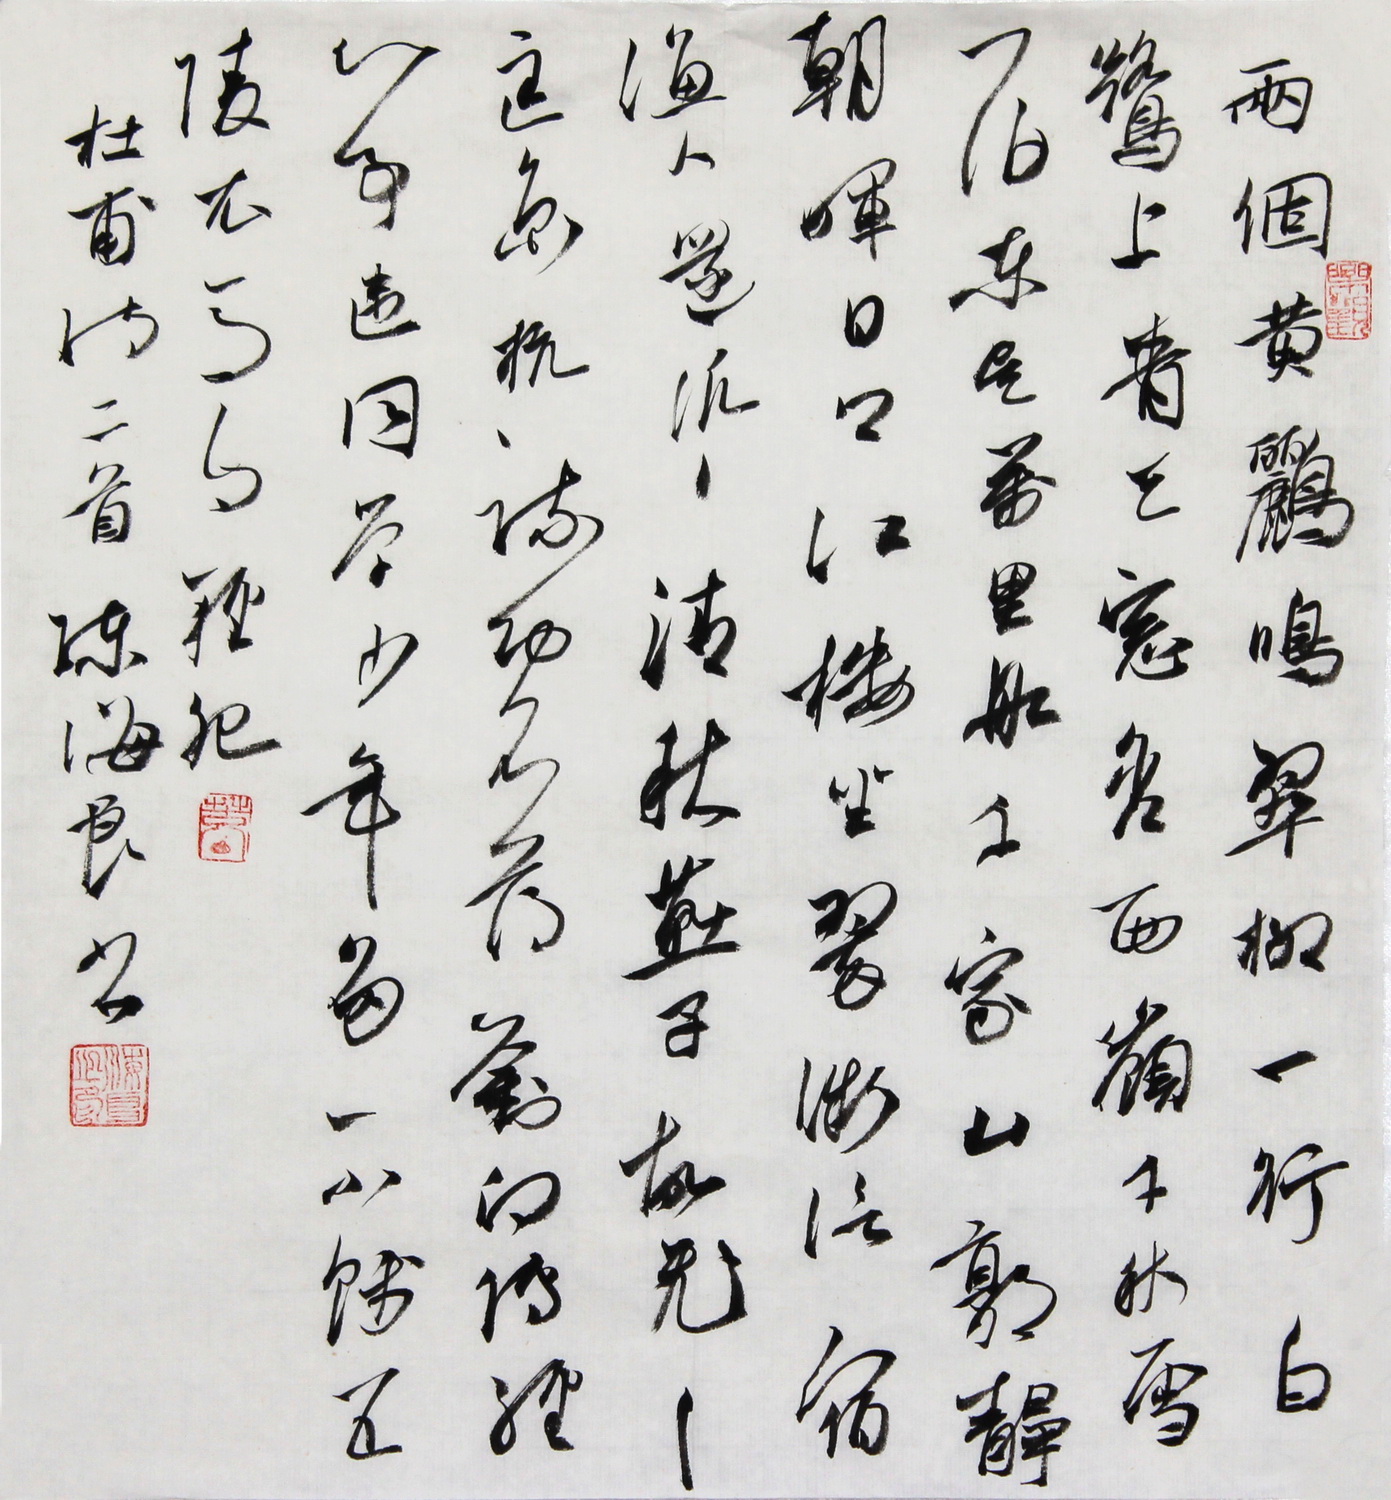 兩個黄鸝鳴翠柳一行白
鷺上青天窓含西嶺千秋雪
门泊东吴萬里船千家山郭靜
朝暉日日江楼坐翠微信宿
漁人還汎汎清秋燕子故飛飛
匡衡抗疏功名薄劉向傳經
心事違同学少年多不賤五
陵衣马自輕肥
杜甫诗二首陈海良书